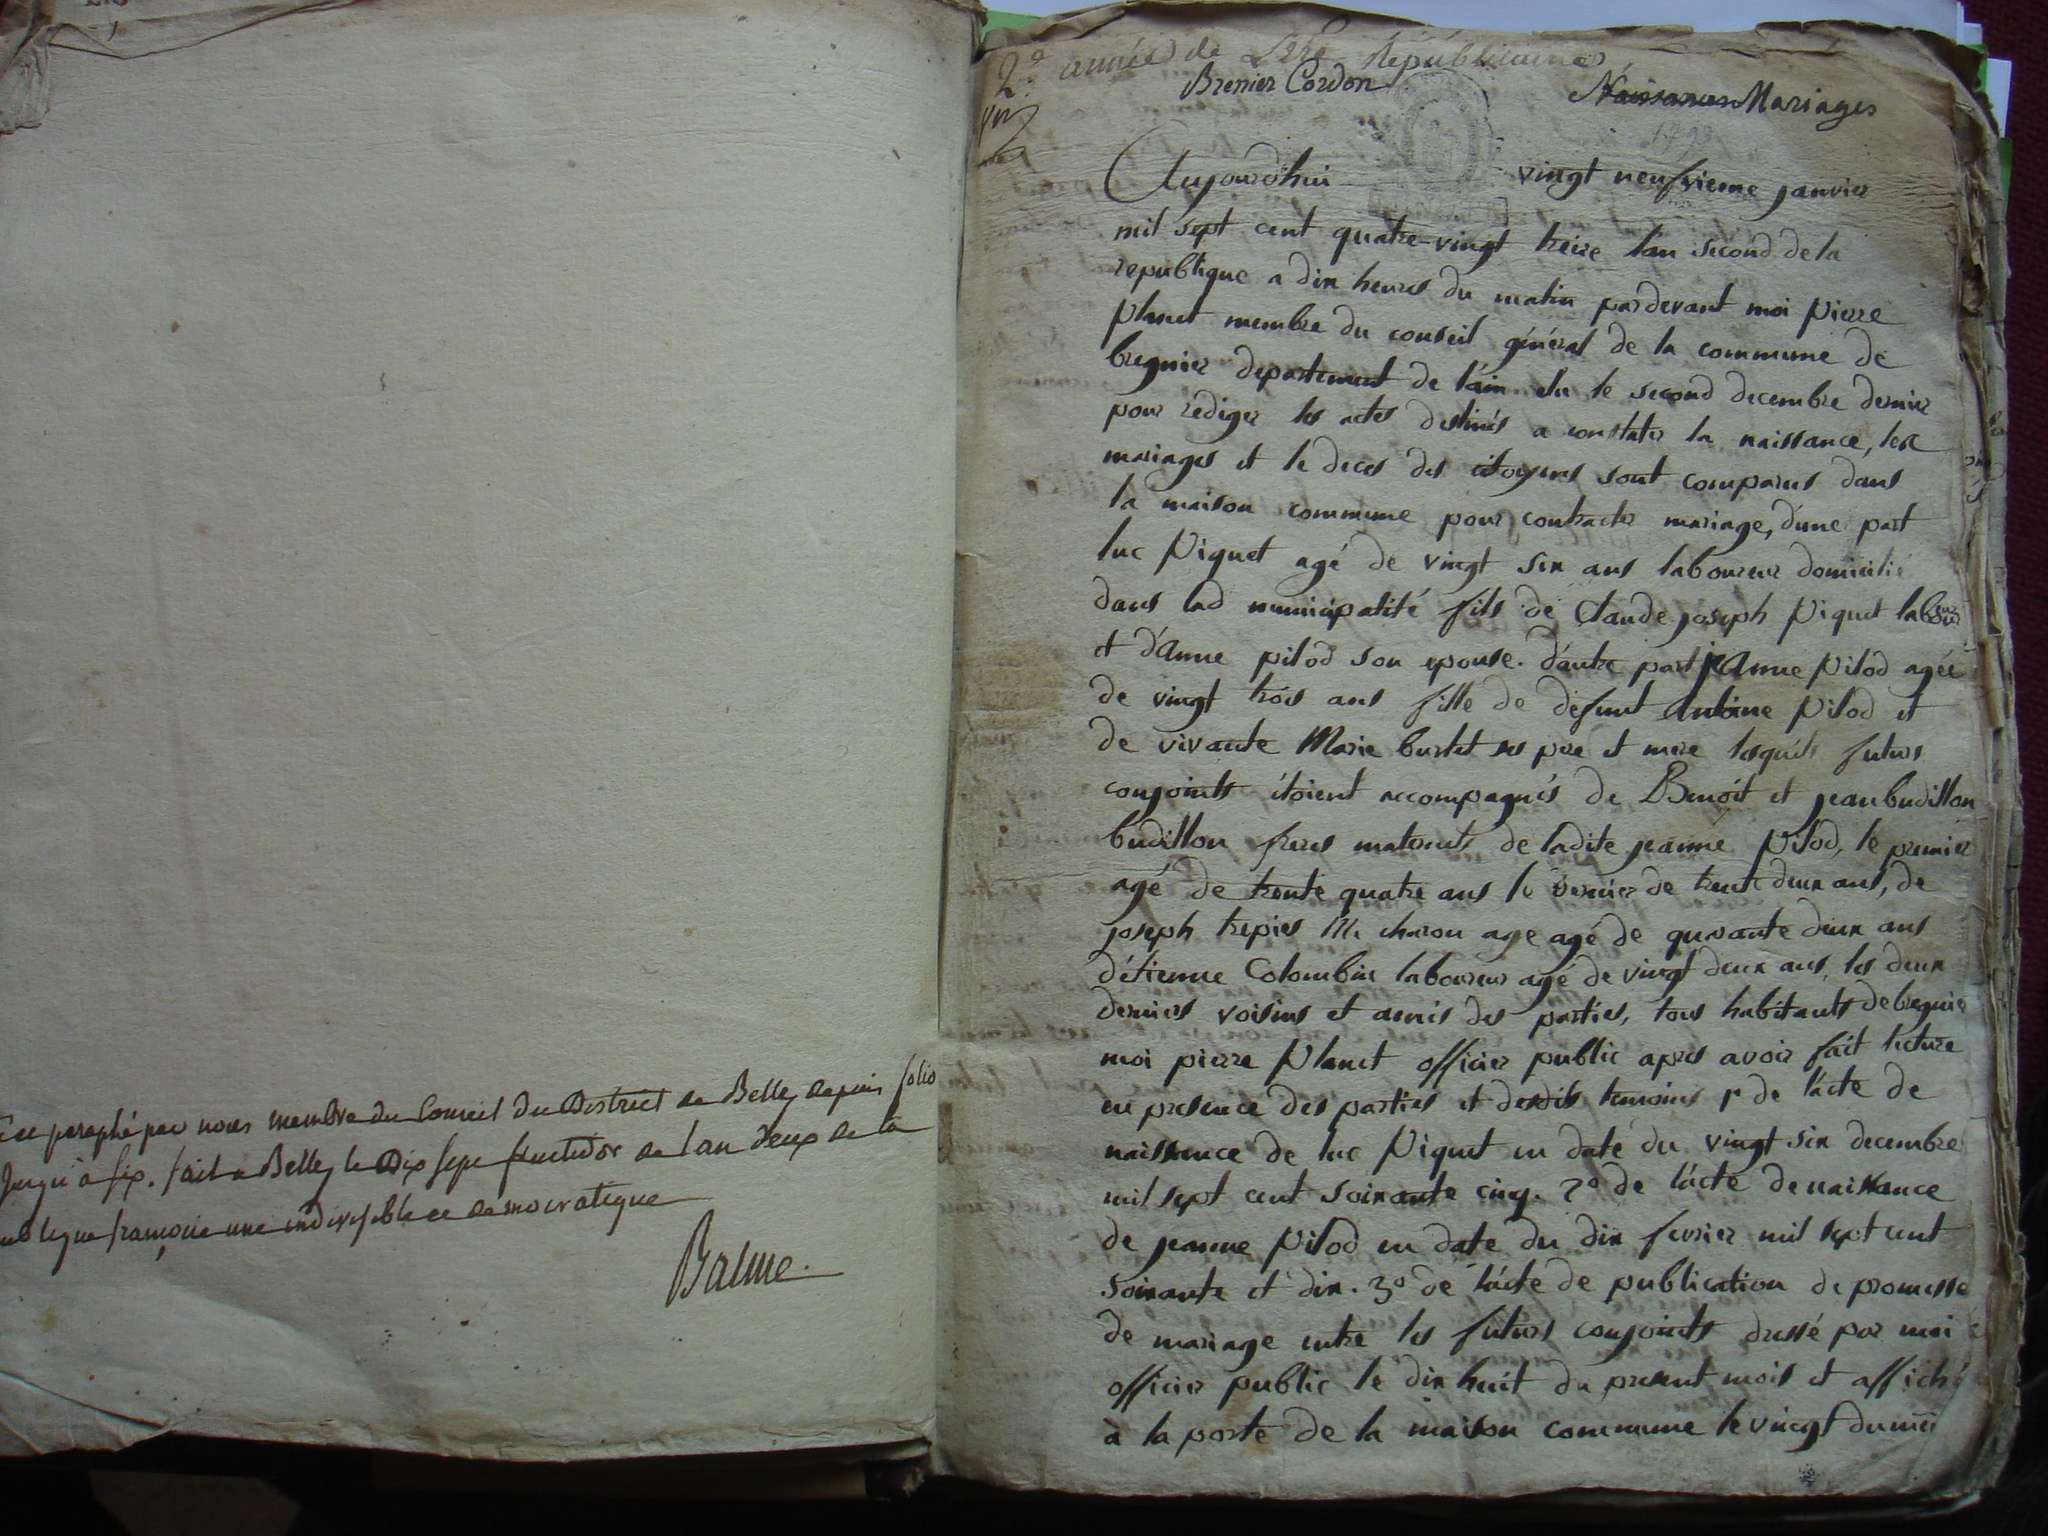 par nous membre du Conseil du District de Belley depuis folio
jusqu'à six. fait a Belley le Dix sept fructidor de l'an deux de la
françoise une indivisible et democratique
Balme.
2e année de L'Ere Républicaine
Brenier Cordon
Naissances Mariages
1793
Aujourd'hui vingt neufvieme janvier
mil sept cent quatre-vingt treize l'an second de la
republique a dix heures du matin pardevant moi pierre
planet membre du conseil général de la commune de
bregnier departement de l'ain elu le second decembre dernier
pour rediger les actes destinés a constater la naissance, les
mariages et le deces des citoyens sont comparus dans
la maison commune pour contracter mariage, d'une part
luc Piquet agé de vingt six ans laboureur domicilié
dans lad municipalité fils de Claude joseph Piquet laboureur
et d'anne pilod son epouse. d'autre part jeanne Pilod agée
de vingt trois ans fille de defunt antoine Pilod et
de vivante Marie burtet ses pere et mere lesquels futurs
conjoints étoient accompagnés de Benoit et jean budillon
budillon freres maternels de ladite jeanne Pilod, le premier
agé de trente quatre ans le dernier de trente deux ans, de
joseph trepier Me charon age agé de quarante deux ans
d'étienne Colombin laboureur agé de vingt deux ans, les deux
derniers voisins et amis des parties, tous habitants de bregnier
moi pierre Planet officier public apres avoir fait lecture
en presence des parties et desdits temoins 1o de l'acte de
naissance de luc Piquet en date du vingt six decembre
mil sept cent soixante cinq. 2o de l'acte de naissance
de jeanne Pilod en date du dix fevrier mil sept cent
soixante et dix. 3o de l'acte de publication de promesse
de mariage entre les futurs conjoints dressé par moi
officier public le dix huit du present mois et affiché
à la porte de la maison commune le vingt du